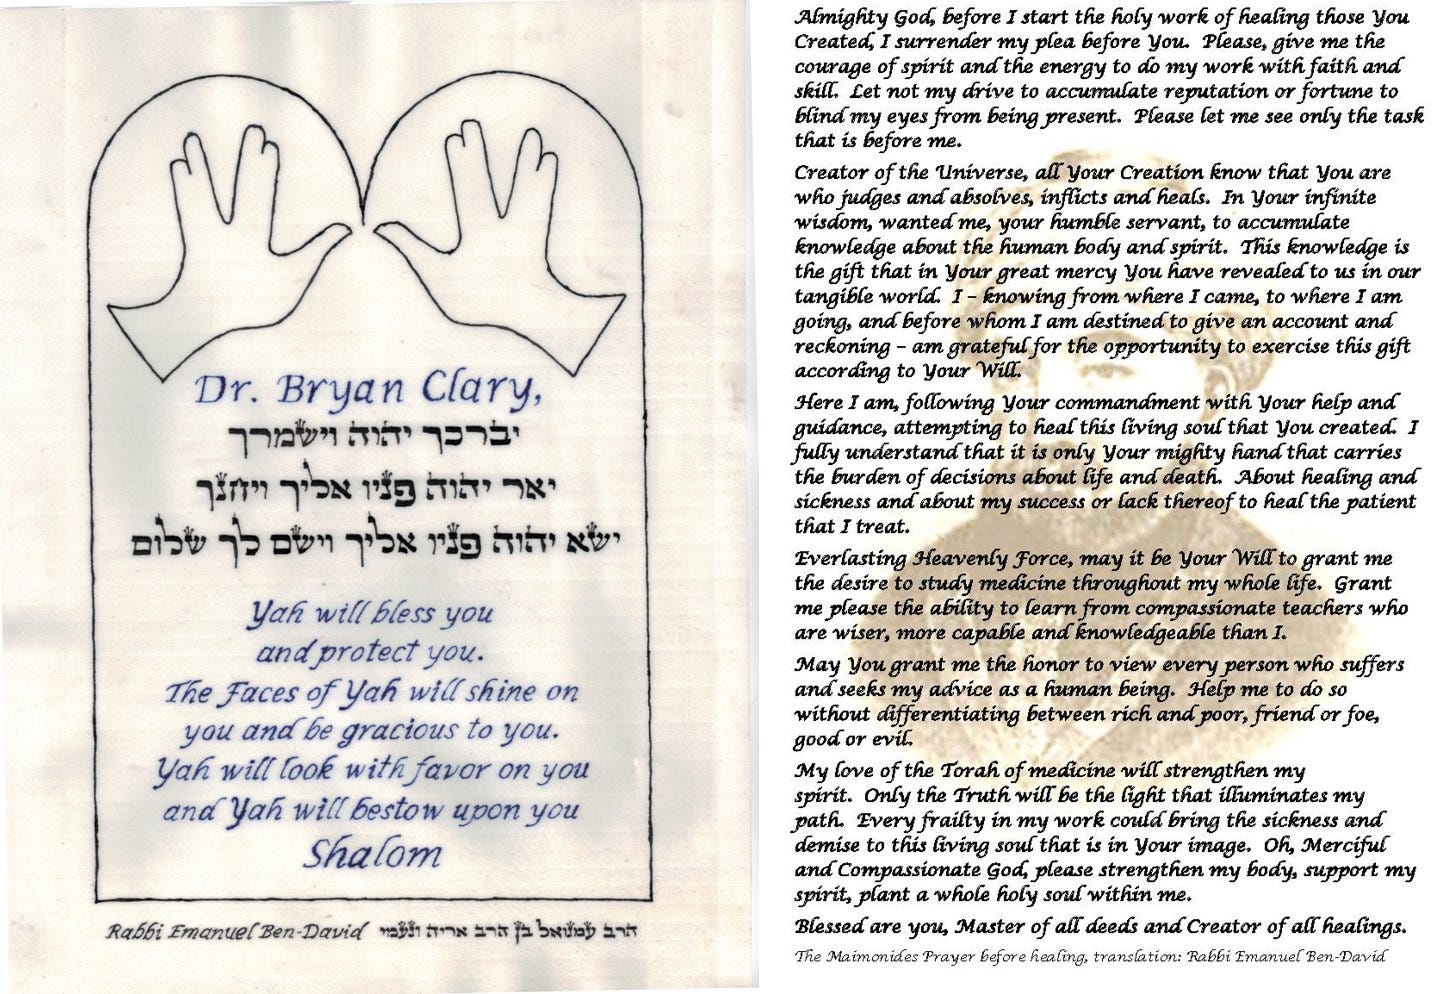 Dr. Bryan Clary,
יברכך יהוה וישמרך
יאר יהוה פניו אליך ויחנך
ישא יהוה פניו אליך וישם לך שלום
Yah will bless you
and protect you.
The Faces of Yah will shine on
you and be gracious to you.
Yah will look with favor on you
and Yah will bestow upon you
Shalom
Rabbi Emanuel Ben-David הרב עמנואל בן הרב אריה ונעמי
Almighty God, before I start the holy work of healing those You
Created, I surrender my plea before You. Please, give me the
courage of spirit and the energy to do my work with faith and
skill. Let not my drive to accumulate reputation or fortune to
blind my eyes from being present. Please let me see only the task
that is before me.
Creator of the Universe, all Your Creation know that You are
who judges and absolves, inflicts and heals. In Your infinite
wisdom, wanted me, your humble servant, to accumulate
knowledge about the human body and spirit. This knowledge is
the gift that in Your great mercy You have revealed to us in our
tangible world. I – knowing from where I came, to where I am
going, and before whom I am destined to give an account and
reckoning – am grateful for the opportunity to exercise this gift
according to Your Will.
Here I am, following Your commandment with Your help and
guidance, attempting to heal this living soul that You created. I
fully understand that it is only Your mighty hand that carries
the burden of decisions about life and death. About healing and
sickness and about my success or lack thereof to heal the patient
that I treat.
Everlasting Heavenly Force, may it be Your Will to grant me
the desire to study medicine throughout my whole life. Grant
me please the ability to learn from compassionate teachers who
are wiser, more capable and knowledgeable than I.
May You grant me the honor to view every person who suffers
and seeks my advice as a human being. Help me to do so
without differentiating between rich and poor, friend or foe,
good or evil.
My love of the Torah of medicine will strengthen my
spirit. Only the Truth will be the light that illuminates my
path. Every frailty in my work could bring the sickness and
demise to this living soul that is in Your image. Oh, Merciful
and Compassionate God, please strengthen my body, support my
spirit, plant a whole holy soul within me.
Blessed are you, Master of all deeds and Creator of all healings.
The Maimonides Prayer before healing, translation: Rabbi Emanuel Ben-David